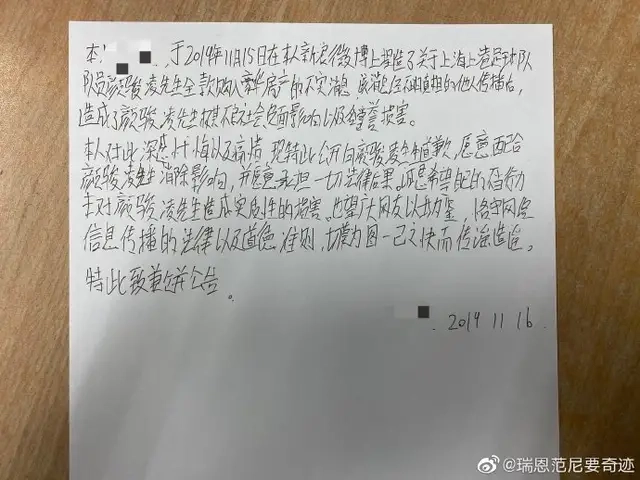 本人，于2019年11月15日在本人新浪微博上捏造了关于上海上港足球队
队员颜骏凌先生全款购入豪华房产的不实消息，该消息经不明真相的他人传播后，
造成了颜骏凌先生极其不良社会负面影响以及名誉损害。
本人对此深感忏悔以及痛惜，现特此公开向颜骏凌先生道歉，愿意配合
颜骏凌先生消除影响，并愿意承担一切法律后果。
去对颜骏凌先生造成实质性的损害。也望广大网友以此为鉴，恪守网络
信息传播的法律以及道德准则，切莫为图一己之快而传谣造谣。
特此致歉并公告。
2019 11 16.
@瑞恩范尼要奇迹